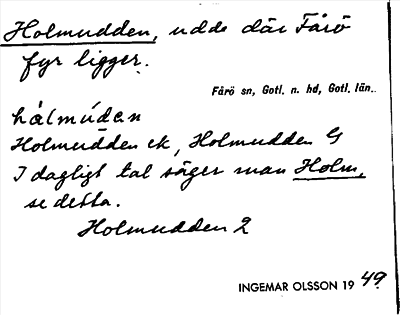 Holmudden, udde där Fårö
fyr ligger.
Fårö sn, Gotl. n. hd, Gotl. län.
hålmúden
Holmudden ek, Holmudden G
I dagligt tal säger man Holm,
se detta.
Holmudden 2
INGEMAR OLSSON 19 49